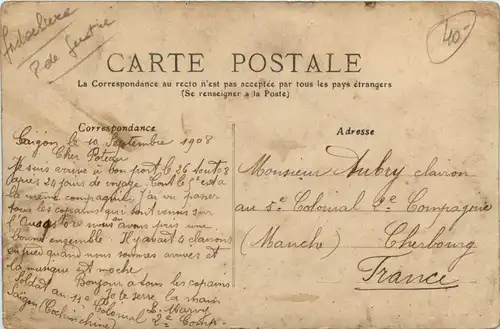 Indochine
P de Guerre
40-
CARTE POSTALE
La Correspondance au recto n'est pas acceptée par tous les pays étrangers
(Se renseigner à la Poste)
Correspondance
Saigon le 10 Septembre 1908
Cher Poteau
Je suis arrivé à bon port le 26 août 08
après 24 jours de voyage tout le est à
la même compagnie. J'ai vu passer
tous les copains qui sont venus sur
l' nous avons pris une
bonne ensemble. Il y avait 4 clairons
au quand nous sommes arrivés et
la musique est moche
Bonjour à tous les copains
Je te serre la main
Soldat au 11e Colonial 2e Comp.
Saigon (Cochinchine)
Adresse
Monsieur Aubry clairon
au 5e Colonial 2e Compagnie
(Manche) Cherbourg
France